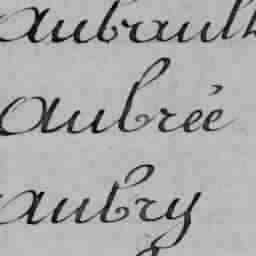 Aubault
Aubrée
Aubry